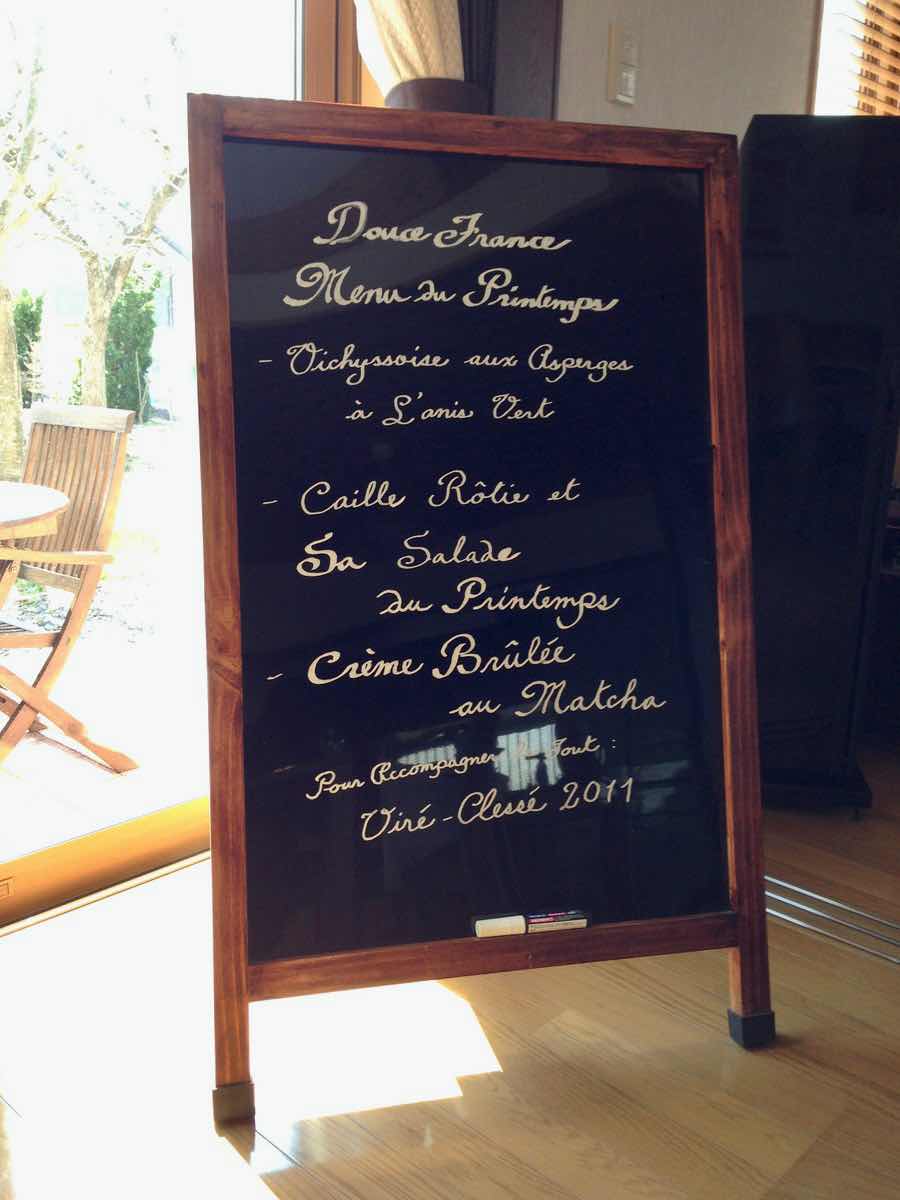 Douce France
Menu du Printemps
- Vichyssoise aux Asperges
à L'anis Vert
- Caille Rôtie et
Sa Salade
du Printemps
- Crème Brûlée
au Matcha
Pour Accompagner le Tout :
Viré-Clessé 2011